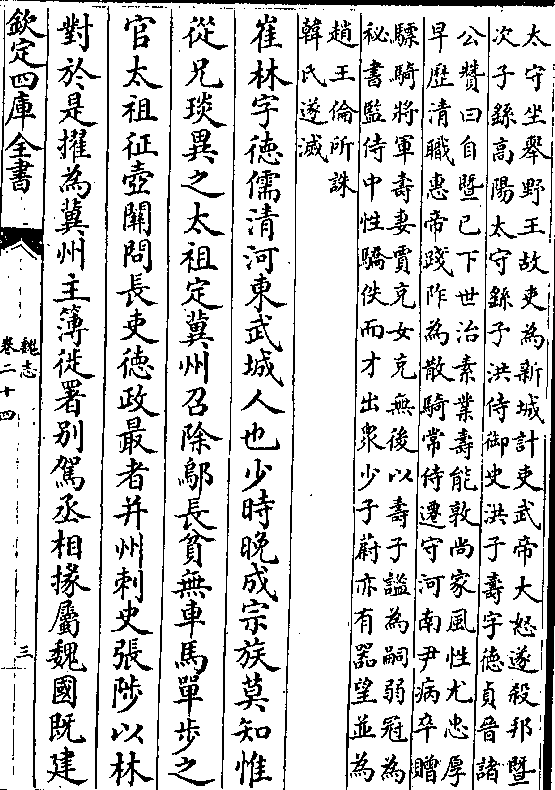 太守坐舉野王故吏為新城計吏武帝大怒遂殺邦暨
次子繇高陽太守繇子洪侍御史洪子壽字徳貞晉諸
公贊曰自暨已下世治素業壽能敦尚家風性尤忠厚
早歴清職惠帝踐阼為散騎常侍遷守河南尹病卒贈
驃騎將軍壽妻賈充女充無後以壽子謐為嗣弱冠為
秘書監侍中性驕佚而才出衆少子蔚亦有器望並為
趙王倫所誅
韓氏遂滅
崔林字徳儒清河東武城人也少時晚成宗族莫知惟
從兄琰異之太祖定冀州召除鄔長貧無車馬單步之
官太祖征壺闗問長吏徳政最者并州刺史張陟以林
對於是擢為冀州主簿徙署别駕丞相掾屬魏國既建
欽定四庫全書
魏志
卷二十四
三